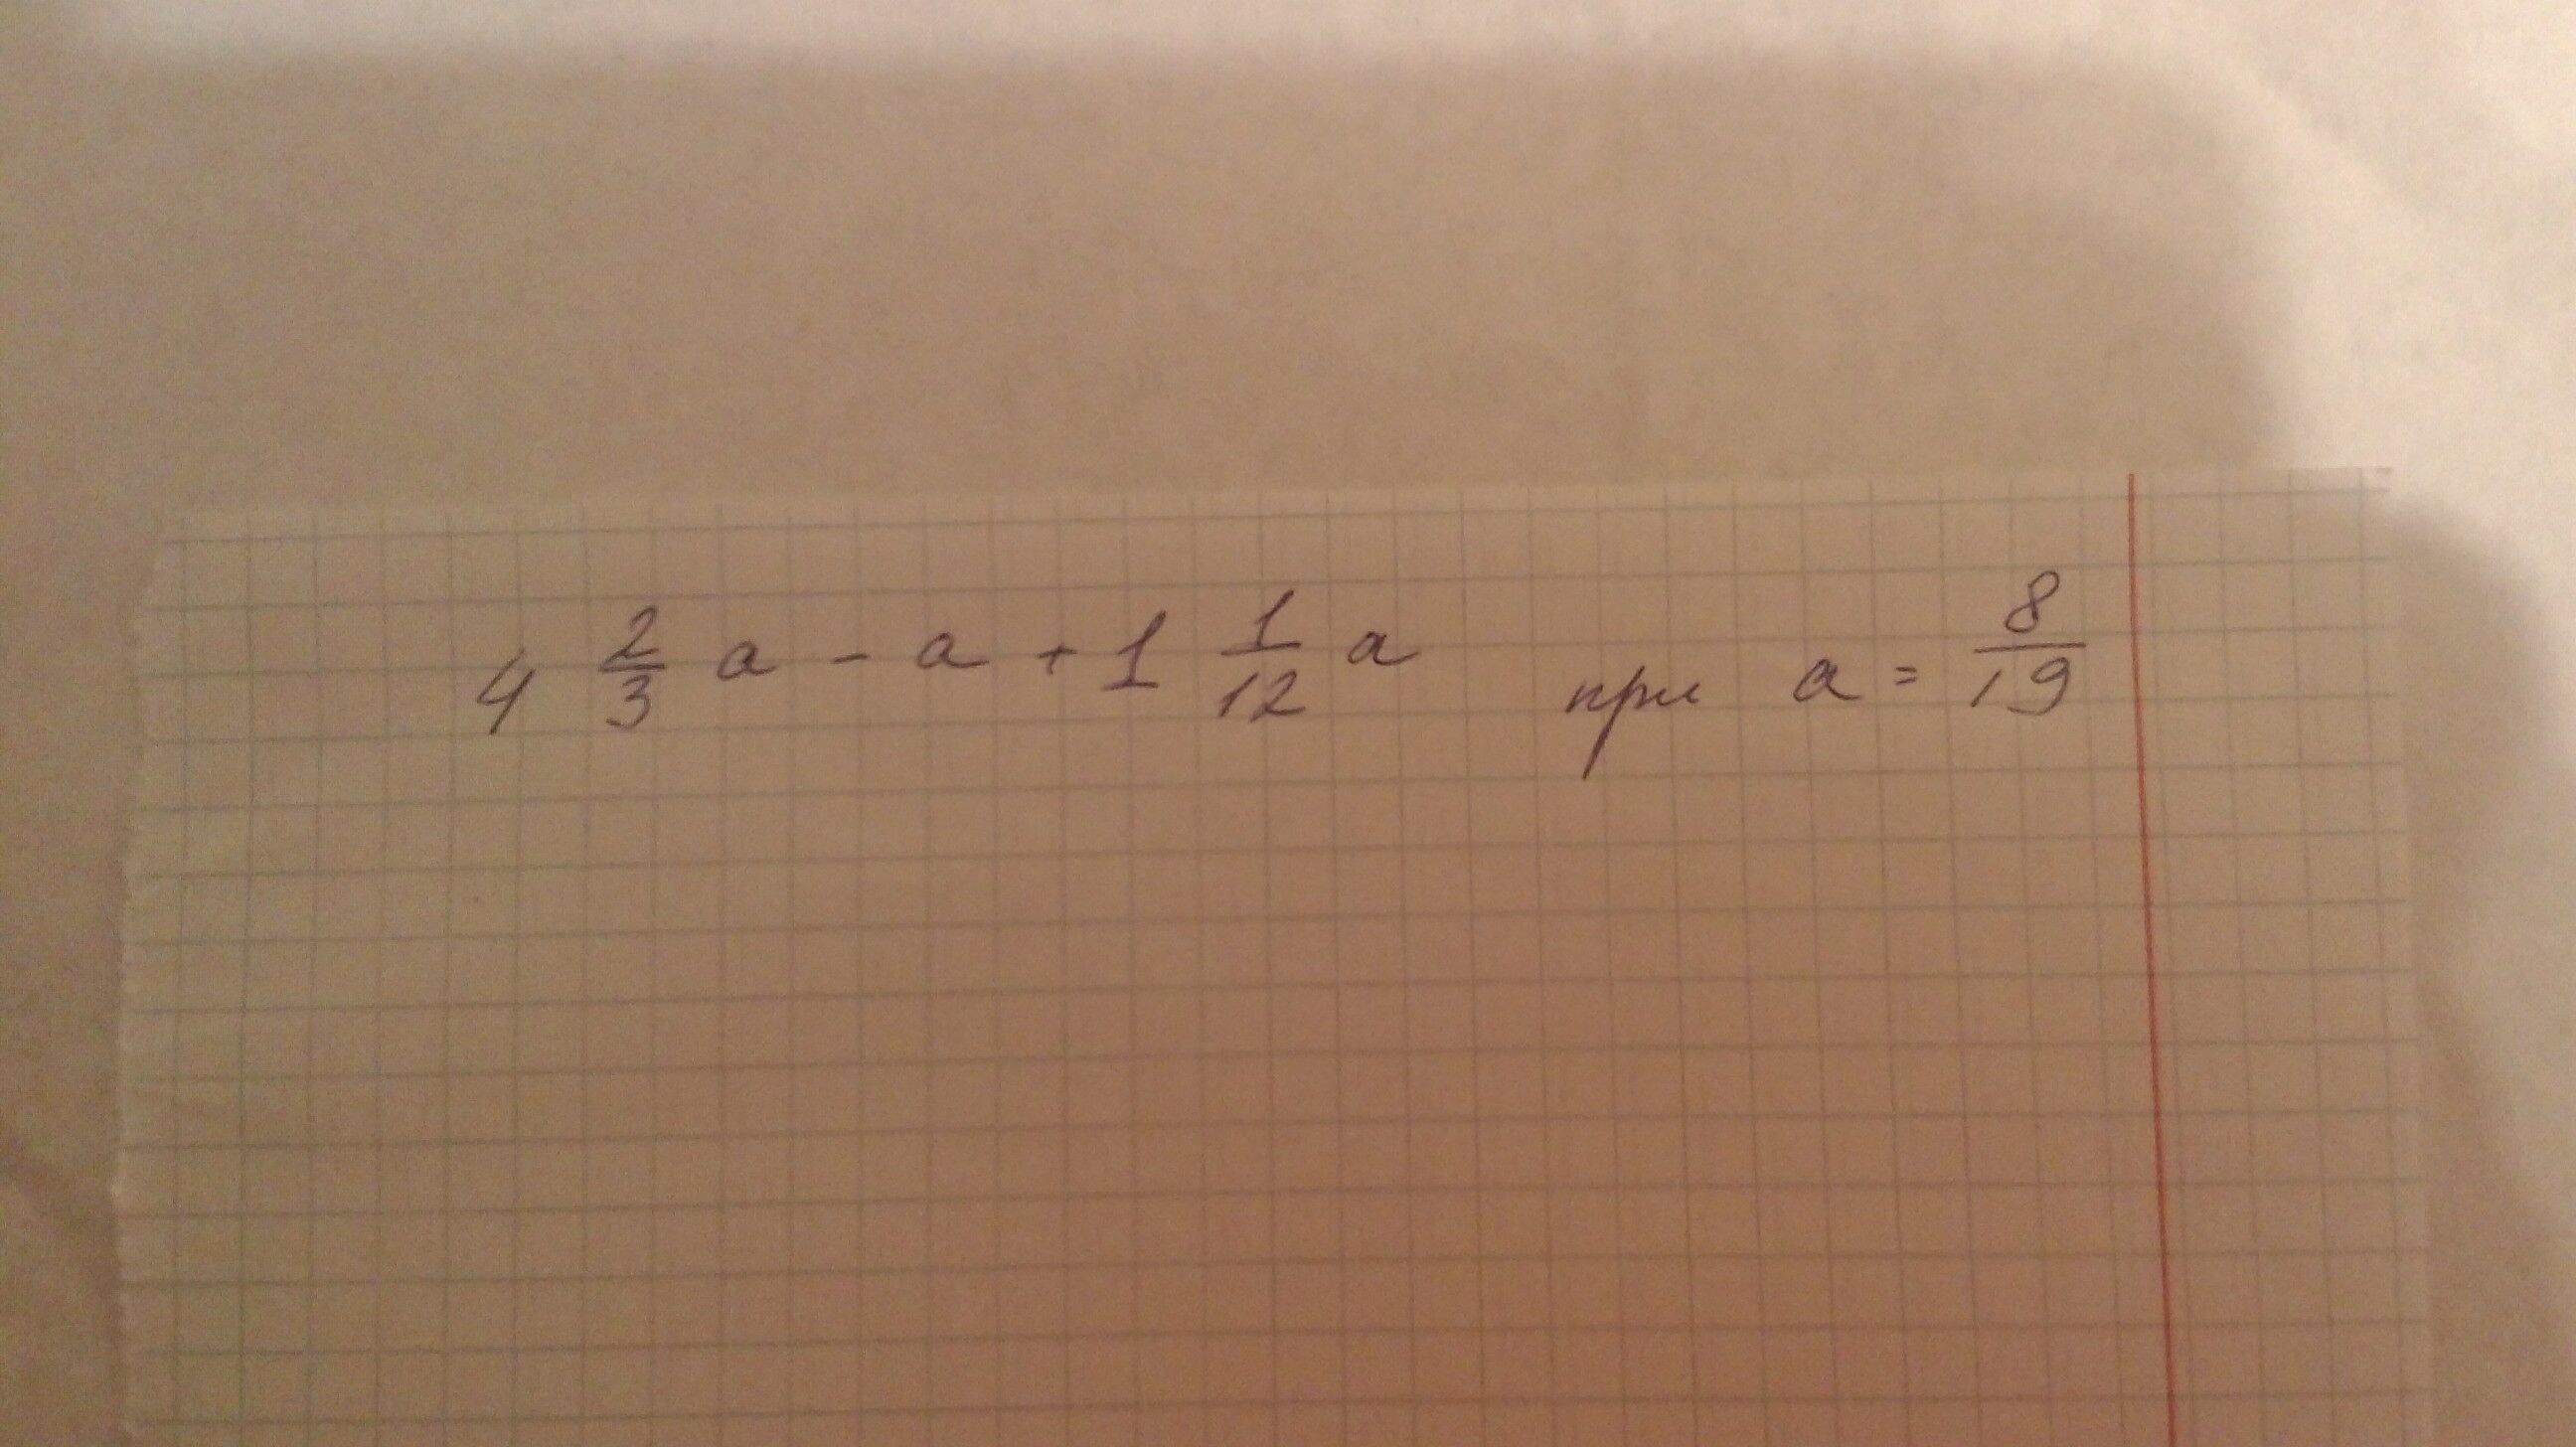 4 2/3 a - a + 1 1/12 a при a = 8/19